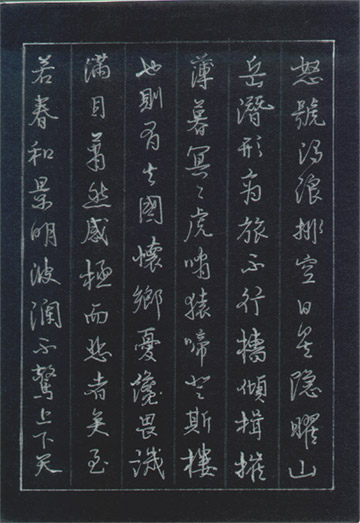 怒號濁浪排空日星隱曜山
岳潛形商旅不行檣傾楫摧
薄暮冥冥虎嘯猿啼登斯樓
也則有去國懷鄉憂讒畏譏
滿目蕭然感極而悲者矣至
若春和景明波瀾不驚上下天